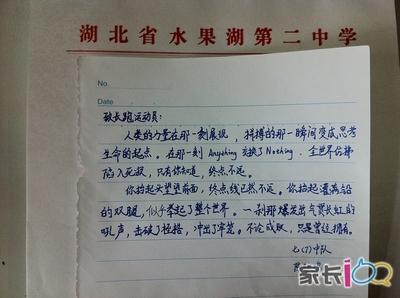 湖北省水果湖第二中学
No.
Date
致长跑运动员：
人类的力量在那一刻展现，拼搏的那一瞬间变成思考
生命的起点。在那一刻 Anything 变换了 Nothing. 全世界仿佛
陷入死寂，只有你知道，终点不远。
你抬起头望望前面，终点线已然不远。你抬起灌满铅
的双腿，似乎举起了整个世界。一刹那爆发出气贯长虹的
吼声，击破了桎梏，冲出了牢笼。不论成败，只是曾经拥有。
七(7)中队
家长100